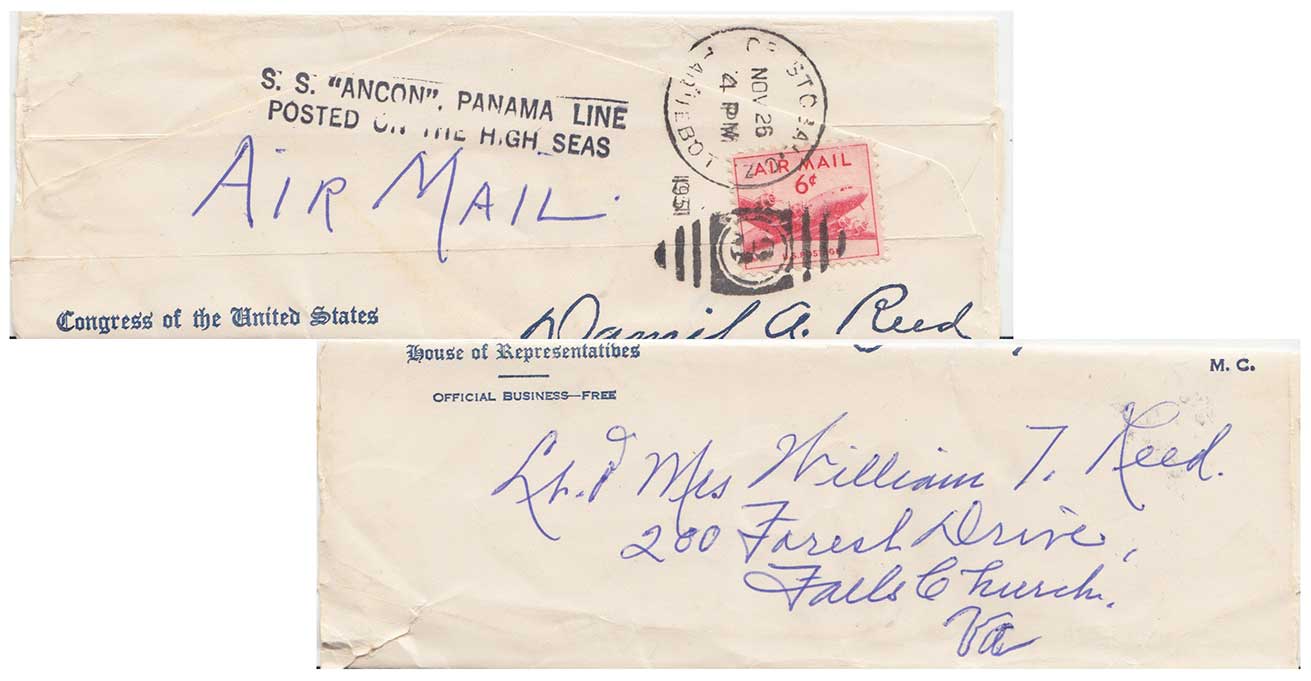 S. S. "ANCON". PANAMA LINE
POSTED ON THE HIGH SEAS
CRISTOBAL C.Z.
NOV 26
4 PM
1951
PAQUEBOT
AIR MAIL
6¢
U.S. POSTAGE
AIR MAIL.
Congress of the United States
Daniel A. Reed
House of Representatives
M. C.
OFFICIAL BUSINESS—FREE
Lt. & Mrs William T. Reed.
200 Forest Drive,
Falls Church,
Va